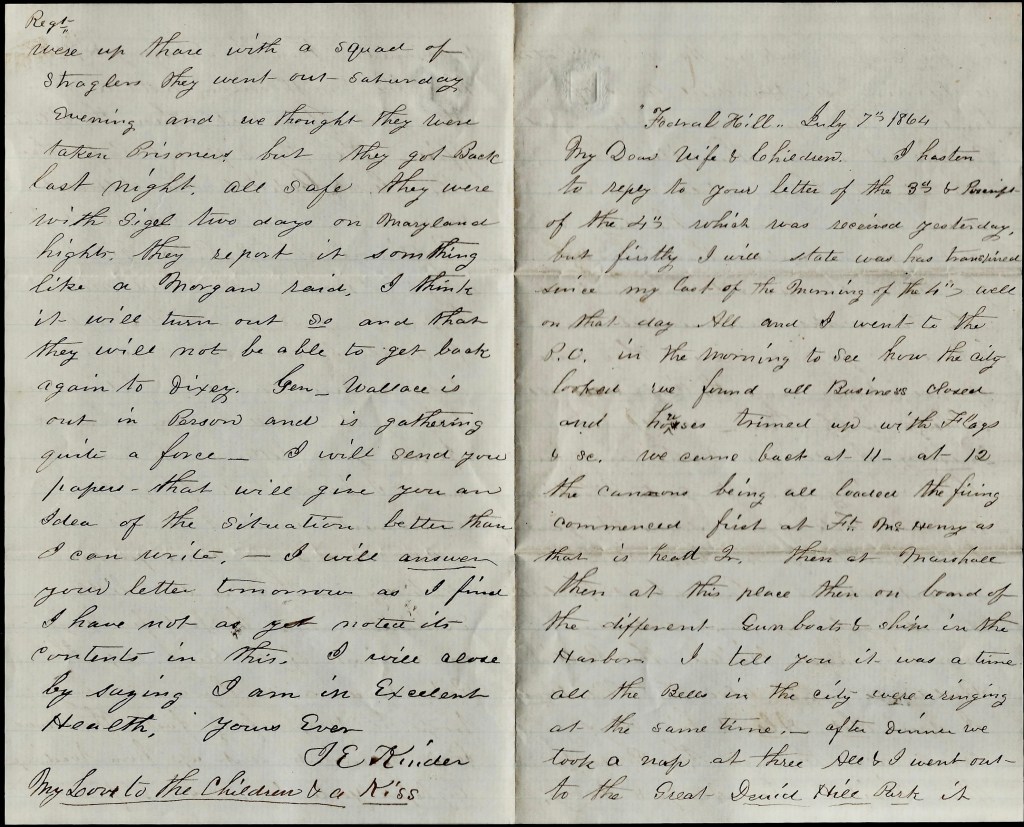 Regt
were up thare with a squad of
Straglers they went out Saturday
Evening and we thought they were
taken Prisoners but they got Back
last night. all safe they were
with Sigel two days on Maryland
hights. they report it somthing
like a Morgan raid, I think
it will turn out so and that
they will not be able to get back
again to Dixey. Gen_ Wallace is
out in Person and is gathering
quite a force — I will send you
papers - that will give you an
Idea of the situation better than
I can write, — I will answer
your letter tomorrow as I find
I have not as yet noted its
contents in this. I will close
by saying I am in Excelent
Health, Yours Ever
J E Kinder
My Love to the Children & a Kiss
Fedral Hill,, July 7th 1864
My Dear Wife & Children. I hasten
to reply to your letter of the 3th &
of the 4th which was received yesterday,
but firstly I will state was has transpired
since my last of the Morning of the 4th well
on that day All and I went to the
P.O. in the morning to see how the city
looked we found all Business closed
and houses trimed up with Flags
& &c. we came back at 11 - at 12
the cannons being all loaded the firing
commenced first at Ft. McHenry as
that is head Qr. then at Marshall
then at this place then on board of
the different Gunboats & ships in the
Harbor I tell you it was a time
all the Bells in the city were a ringing
at the same time. — after Dinner we
took a nap at three All & I went out
to the Great David Hill Park it